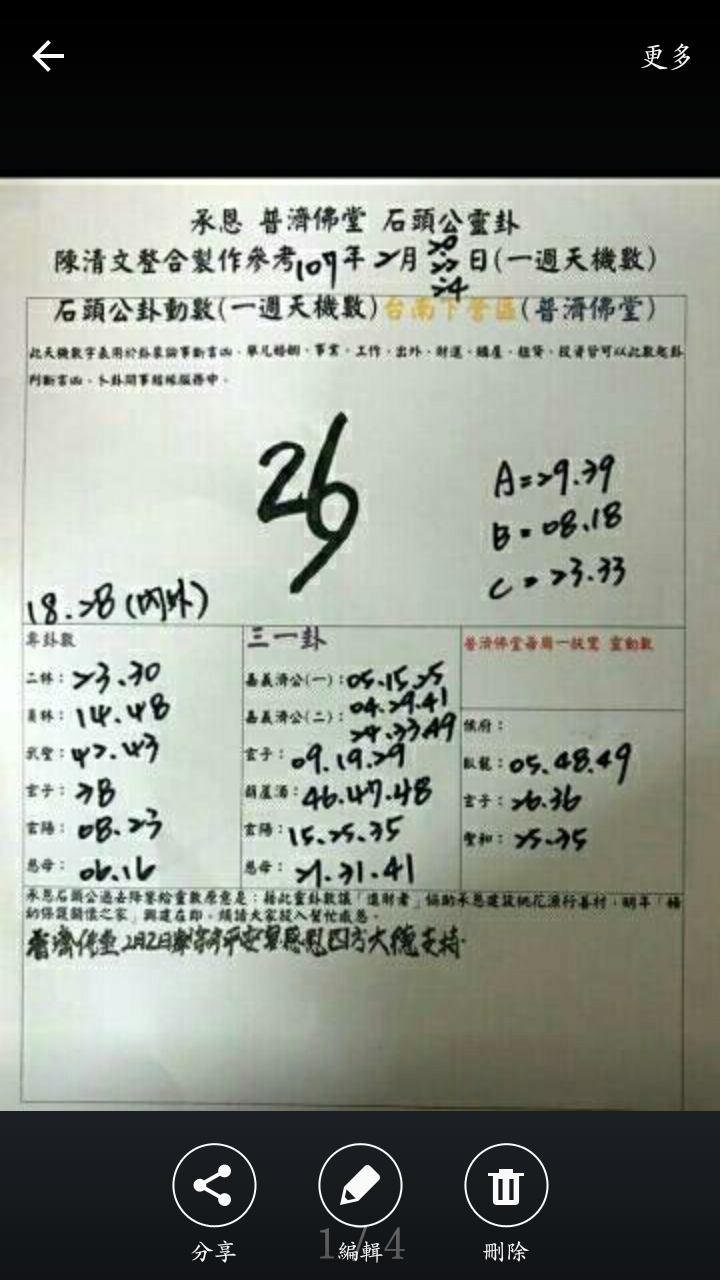 更多
承恩 普濟佛堂 石頭公靈卦
陳清文整合製作參考107年2月20 22 24日(一週天機數)
石頭公卦動數(一週天機數)台南下營區(普濟佛堂)
此天機數字表用於卦象論事斷吉凶，舉凡婚姻、事業、工作、出外、財運、購屋、租貸、投資皆可以此數起卦
判斷吉凶、卜卦問事結緣服務中。
26
A=29.39
B=08.18
C=23.33
18.28(內外)
專卦數
三一卦
普濟佛堂每周一扶鸞 靈動數
二林：23.30
嘉義濟公(一)：05.15.25
員林：14.48
嘉義濟公(二)：04.29.41
24.33.49
侯府：
武聖：42.43
玄子：09.19.29
臥龍：05.48.49
玄子：28
葫蘆酒：46.47.48
玄子：26.36
玄陽：08.23
玄陽：15.25.35
聖和：25.35
慈母：06.16
慈母：21.31.41
承恩石頭公過去降鸞給靈數原意是：藉此靈卦數讓「進財者」協助承恩建設桃花源行善村，明年「婦
幼保護關懷之家」興建在即，煩請大家投入幫忙感恩。
普濟佛堂2月2日 平安 感恩 四方大德支持
分享
編輯
刪除
1/4